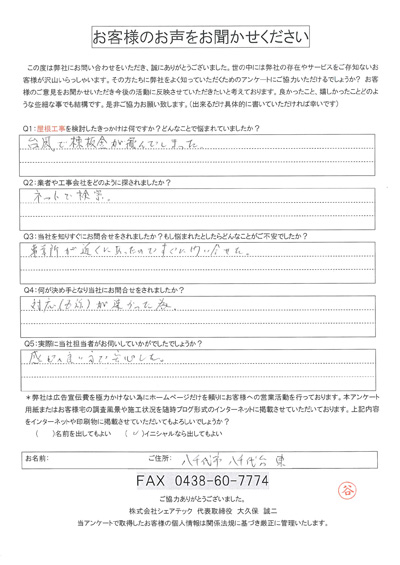 お客様のお声をお聞かせください
この度は弊社にお問い合わせをいただき、誠にありがとうございました。世の中には弊社の存在やサービスをご存知ないお
客様が沢山いらっしゃいます。その方たちに弊社をよく知っていただくためのアンケートにご協力いただけるでしょうか? お客
様のご意見をお聞かせいただき今後の活動に反映させていただきたいと考えております。良かったこと、嬉しかったことどのよ
うな些細な事でも結構です。是非ご協力お願い致します。(出来るだけ具体的に書いていただければ幸いです)
Q1:屋根工事を検討したきっかけは何ですか?どんなことで悩まれていましたか?
台風で棟板金が飛んでしまった
Q2:業者や工事会社をどのように探されましたか?
ネットで検索.
Q3:当社を知りすぐにお問合せをされましたか?もし悩まれたとしたらどんなことがご不安でしたか?
事業所が近くにあったのですぐに問い合せた。
Q4:何が決め手となり当社にお問合せをされましたか?
対応(　)が速かった為
Q5:実際に当社担当者がお伺いしていかがでしたでしょうか?
感じのよい方で安心した。
*弊社は広告宣伝費を極力かけない為にホームページだけを頼りにお客様への営業活動を行っております。本アンケート
用紙またはお客様宅の調査風景や施工状況を随時ブログ形式のインターネットに掲載させていただいております。上記内容
をインターネットや印刷物に掲載させていただいてもよろしいでしょうか?
( )名前を出してもよい (✓)イニシャルなら出してもよい
お名前: ご住所: 八千代市 八千代台 東
FAX 0438-60-7774
谷
ご協力ありがとうございました。
株式会社シェアテック 代表取締役 大久保 誠二
当アンケートで取得したお客様の個人情報は関係法規に基づき厳正に管理いたします。